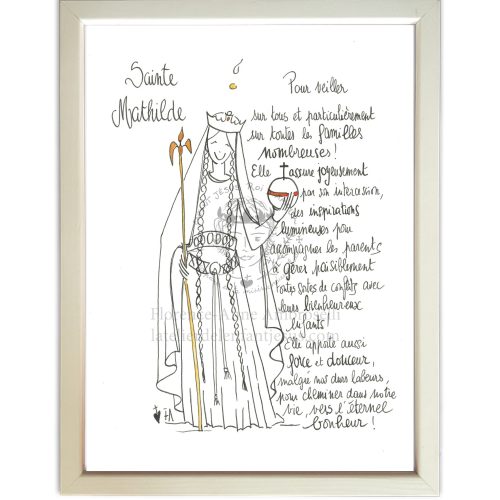 Sainte
Mathilde
Pour veiller
sur tous et particulièrement
sur toutes les familles
nombreuses!
Elle assure joyeusement
par son intercession,
des inspirations
lumineuses pour
accompagner les parents
à gérer paisiblement
toutes sortes de conflits avec
leurs bienheureux
enfants
Elle apporte aussi
force et douceur,
malgré nos durs labeurs,
pour cheminer dans notre
vie, vers l'éternel
bonheur!